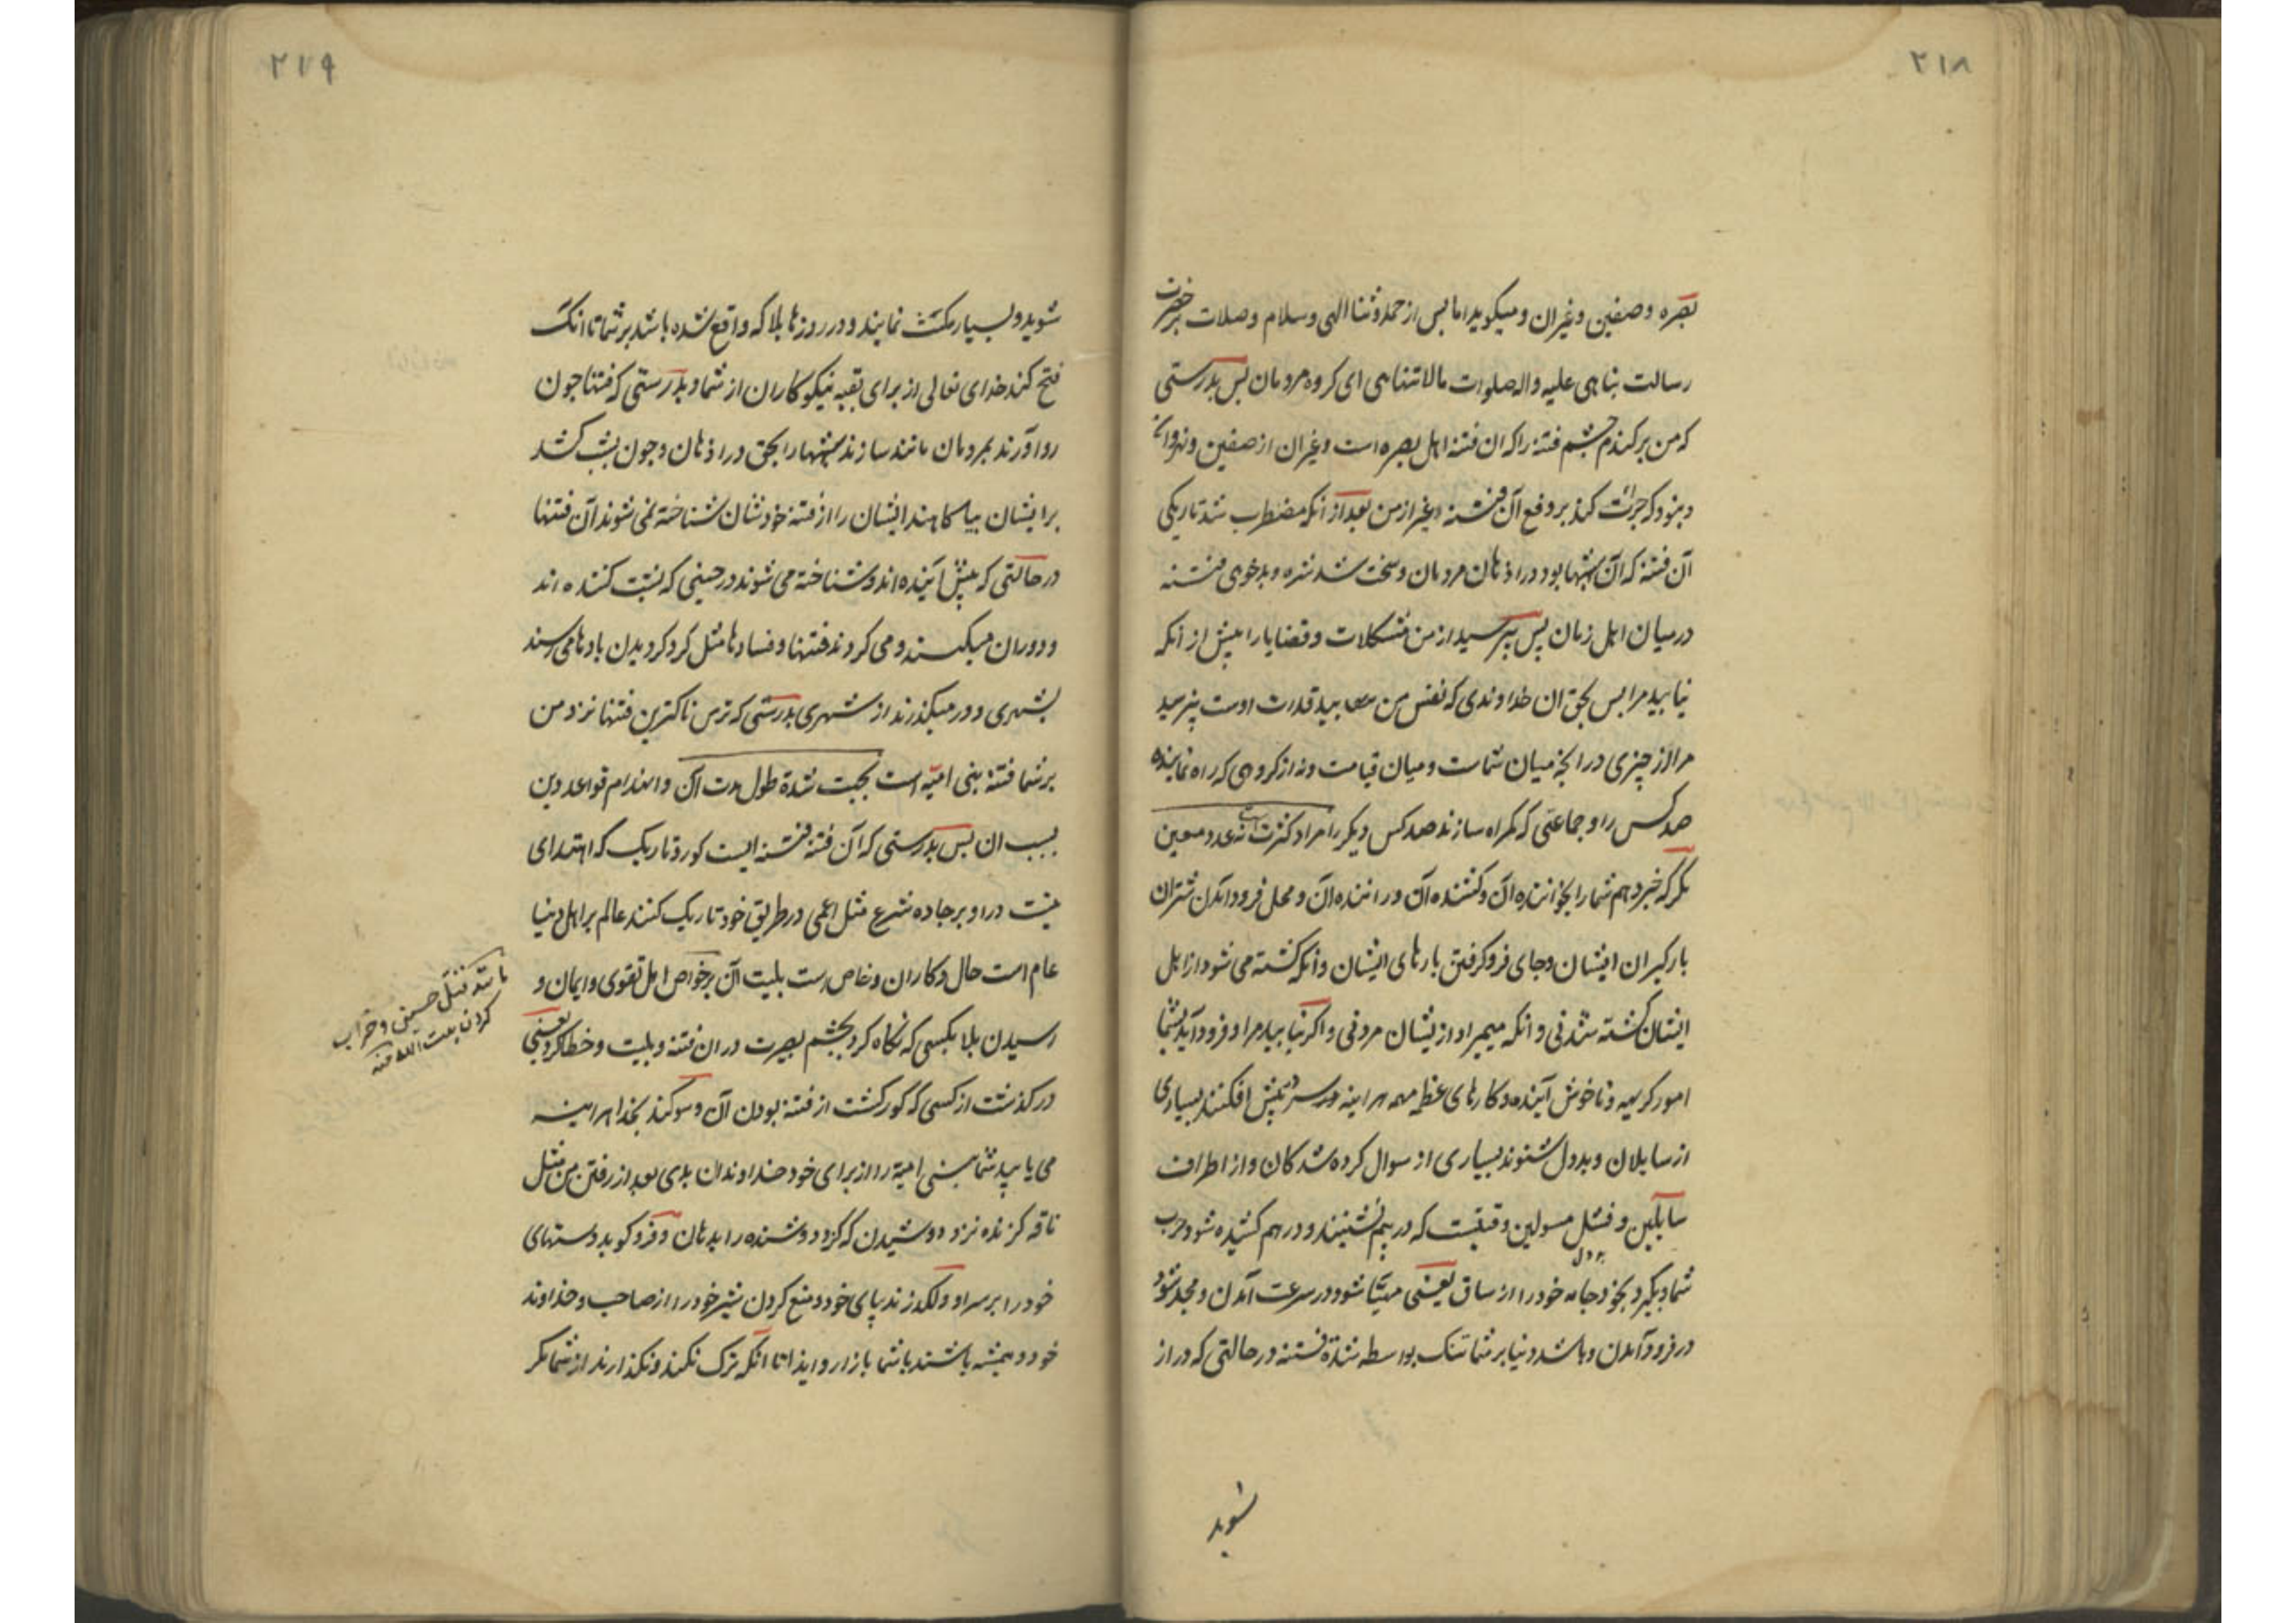 ۲۱۸
بصره و صفین و غیران و میکوید اما بس از حمد و ثنا الهی و سلام و صلات بر حضرت
رسالت بناهی علیه واله صلوات مالا تتناهی ای کروه مردمان بس بدرستی
که من برکندم چشم فتنه را که ان فتنه اهل بصره است و غیران از صفین و نهروان
و نبود که جرأت کند بر دفع آن فتنه غیر از من بعد از انکه مضطرب شد تاریکی
آن فتنه که آن شبهها بود در اذهان مردمان و سخت شد شره و بدخوی فتنه
در میان اهل زمان پس بپرسید از من مشکلات و قضایا را پیش از انکه
نیابید مرا بس بحق ان خداوندی که نفس من بید قدرت اوست نپرسید
مرا از چیزی در انچه میان شماست و میان قیامت و نه از کروهی که راه نماینده
صد کس را و جماعتی که کمراه سازند صد کس دیکر را مراد کثرت است نه عدد معین
مکر که خبر دهم شما را بخواننده آن و کشنده آن و راننده آن و محل فرود آمدن شتران
بارکیران ایشان و جای فرو کرفتن بارهای ایشان و انکه کشته می شود از اهل
ایشان کشته شدنی و انکه میمیرد از یشان مردنی و اکر نیابید مرا و فرود آید بشما
امور کریهه و ناخوش آینده و کارهای عظیمه هر اینه سر در پیش افکنند بسیاری
از سایلان و بددل شنوند بسیاری از سوال کرده شدکان و از اطراف
سایلین و فشل مسولین وقتیست که در بیم نشینند و درهم کشیده شود حرب
شما و بکیرد بخود جامه خود را از ساق یعنی مهیّا شود در سرعت آمدن و مجد شود
در فرود آمدن و باشد دنیا بر شما تنک بواسطه شدة فتنه در حالتی که دراز
شوید
۲۱۹
شوید و بسیار مکث نمایند و در روزها بلا که واقع شده باشد بر شما تا انکه
فتح کند خدای تعالی از برای بقیه نیکو کاران از شما و بدرستی که فتنها جون
رو آورند بمردمان مانند سازند شبهها را بحق در اذهان و جون پشت کنند
بر ایشان بیاکاهند ایشان را از فتنه خودشان شناخته نمی شوند آن فتنها
در حالتی که پیش آینده اند و شناخته می شوند در حینی که پشت کننده اند
و دوران میکنند و می کردند فتنها و فسادها مثل کرد کردیدن بادها می رسند
بشهری و در میکذرند از شهری بدرستی که ترس ناکترین فتنها نزد من
بر شما فتنه بنی امیّه است بجهت شدة طول مدت آن و انهدام قواعد دین
بسبب ان بس بدرستی که آن فتنه فتنه ایست کور و تاریک که اهتدای
نیست در او بر جاده شرع مثل اعمی در طریق خود تاریک کنند عالم بر اهل دنیا
عام است حال و کار ان و خاص است بلیت آن بر خواص اهل تقوی و ایمان و
رسیدن بلا بکسی که نکاه کرد بچشم بصیرت در ان فتنه و بلیت و خطا کرد یعنی
درکذشت از کسی که کور کشت از فتنه بودن آن و سوکند بخدا هر اینه
می یابید شما بنی امیة را از برای خود خداوندان بدی بعد از رفتن من مثل
ناقه کزنده نزد دوشیدن که کزد دوشنده را بدهان و فرو کوبد بدستهای
خود را بر سر او و لکد زند بپای خود و منع کردن شیر خود را از صاحب و خداوند
خود و همیشه باشند باشما بازار و ایذا تا انکه ترک نکنند و نکذارند از شما مکر
مانند قتل حسین و خراب
کردن بیت الله